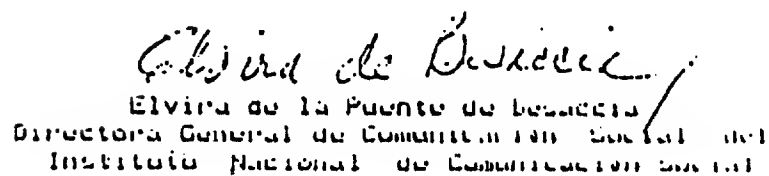 Elvira de Besaccia
Elvira de la Puente de Besaccia
Directora General de Comunicación Social del
Instituto Nacional de Comunicación Social